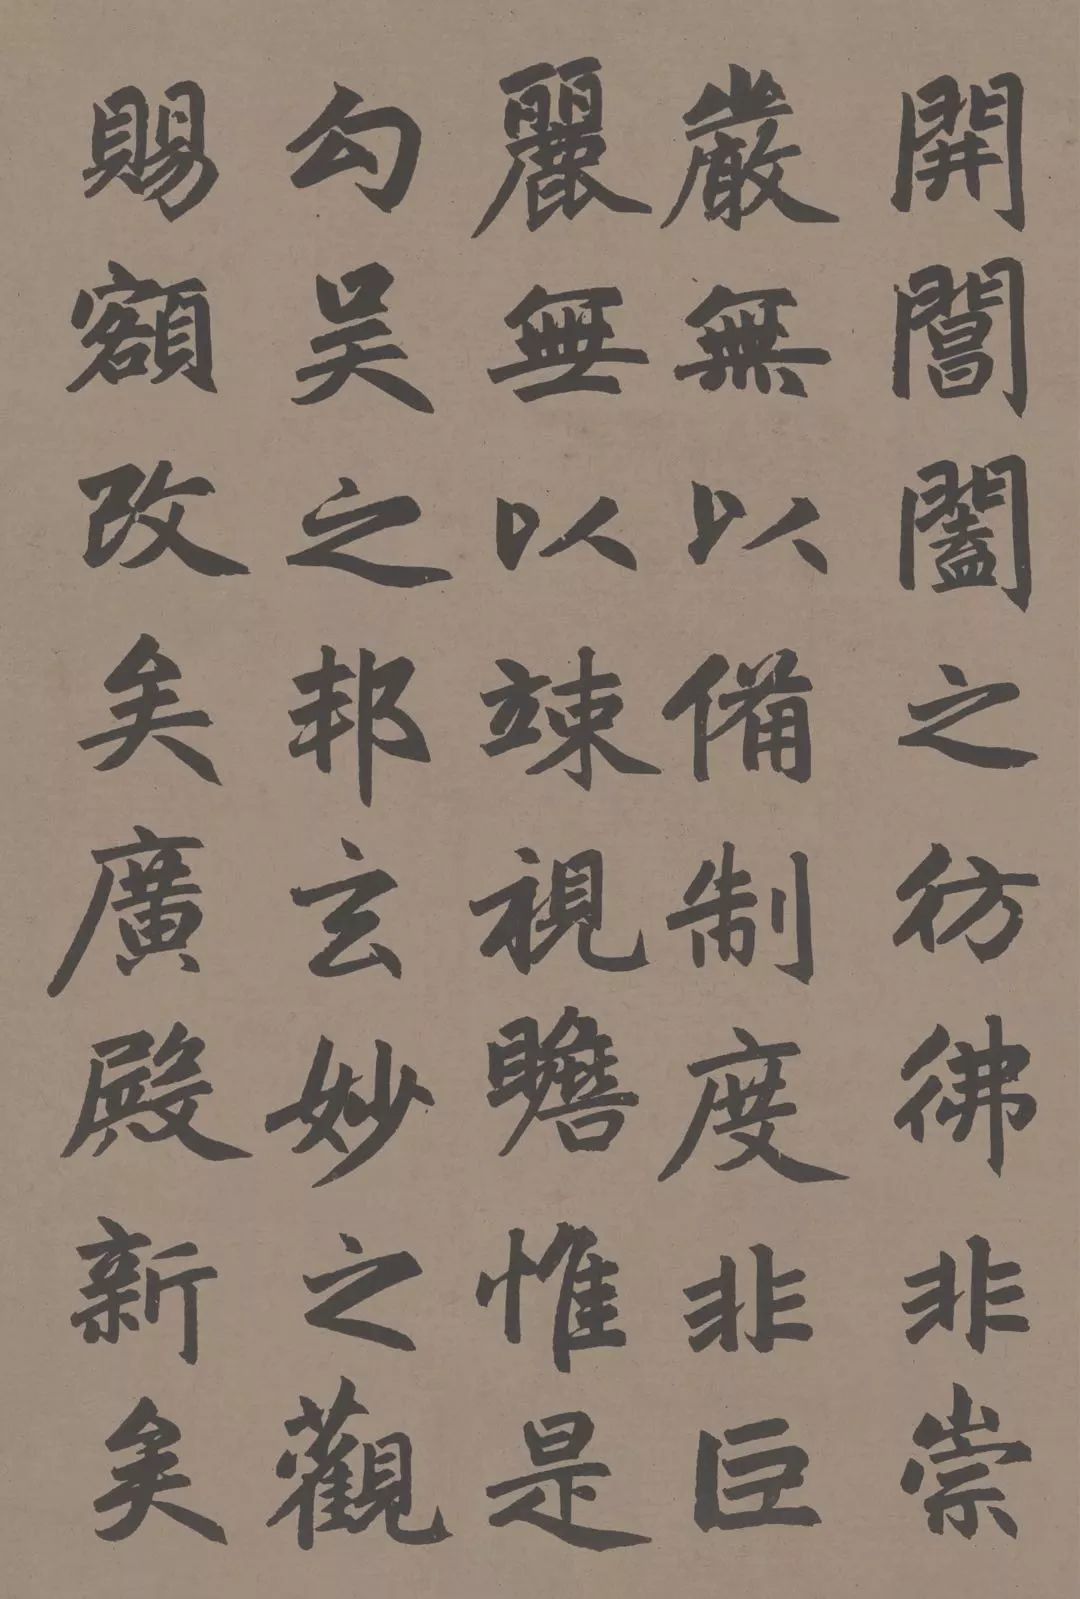 開闔闔之彷彿非崇
嚴無以備制度非巨
麗無以竦視瞻惟是
勾吴之邦玄妙之觀
賜額改矣廣殿新矣